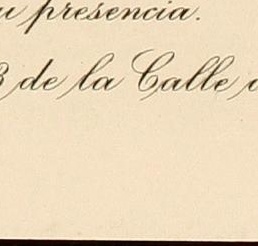 presencia.
de la Calle